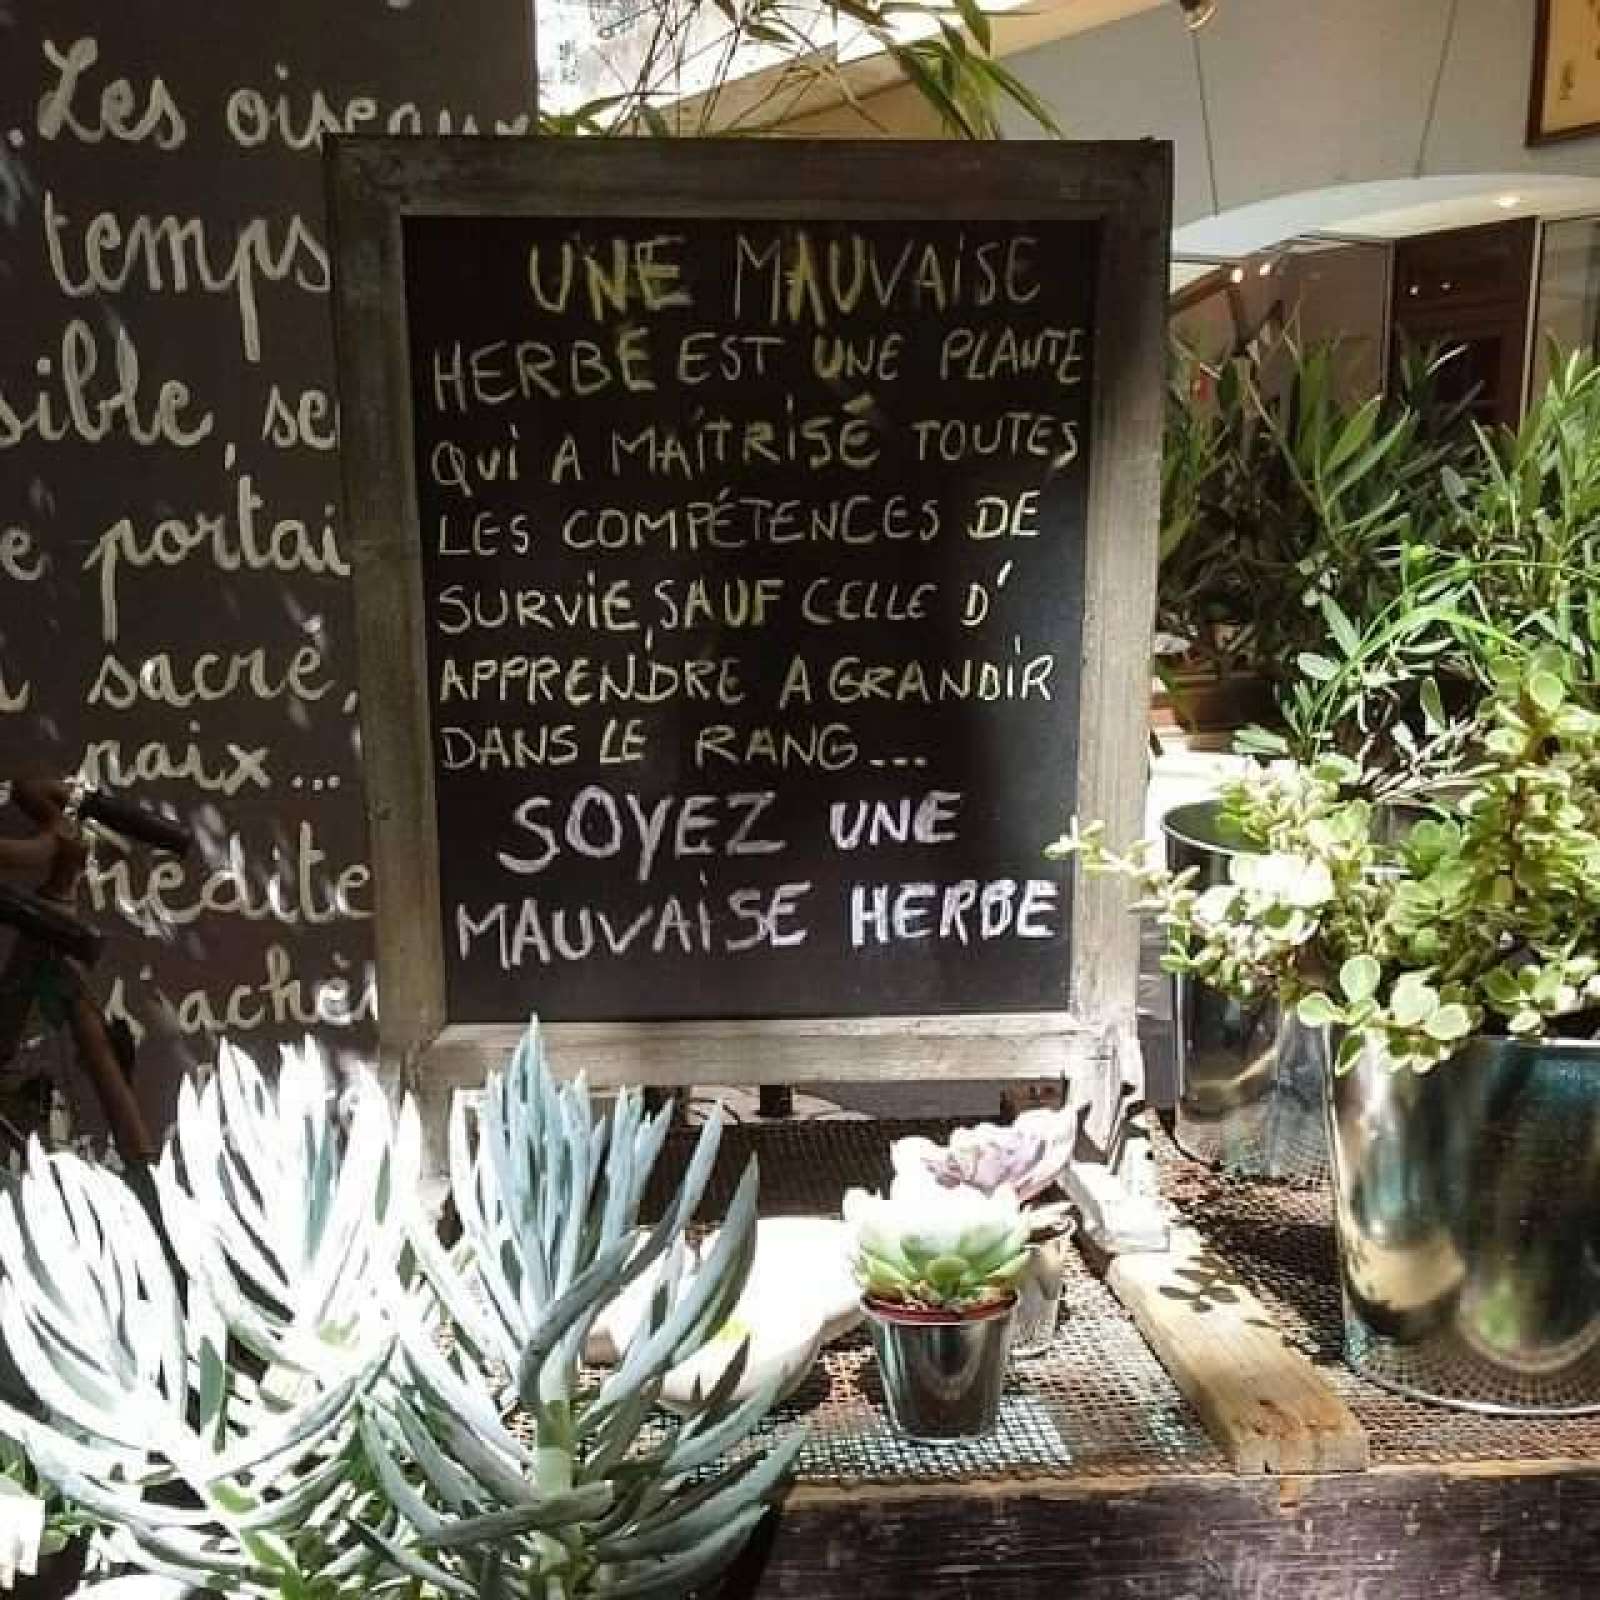 . Les oiseaux
temps
sible, se
e portai
sacré,
paix...
médite
s'achèt
UNE MAUVAiSE
HERBE EST UNE PLANTE
QUi A MAÎTRiSÉ TOUTES
LES COMPÉTENCES DE
SURViE, SAUF CELLE D'
APPRENDRE A GRANDiR
DANS LE RANG...
SOYEZ UNE
MAUVAiSE HERBE